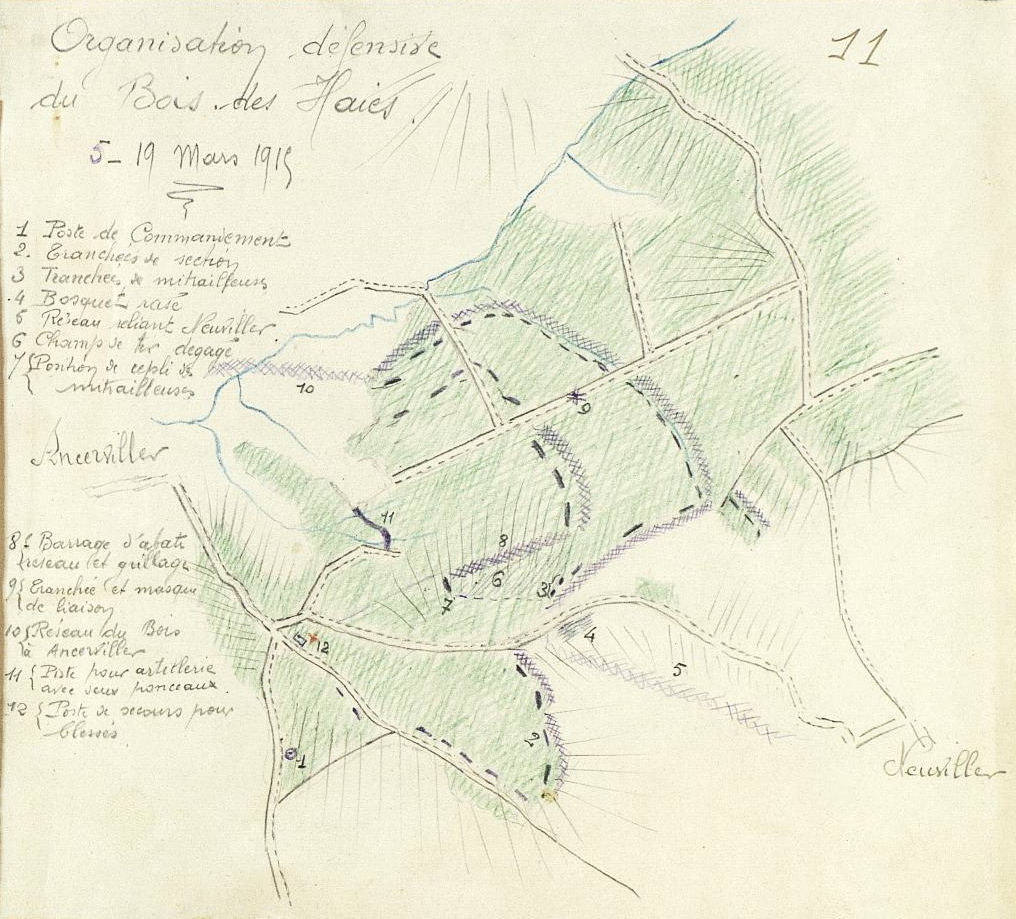 Organisation défensive
du Bois des Haies.
11
5-19 Mars 1915
1 Poste de Commandement
2. Tranchées de section
3 Tranchées de mitrailleuses
4 Bosquet rasé
5 Réseau reliant Neuviller.
6 Champ de tir dégagé
7 { Position de repli de
mitrailleuses
10
9
Ancerviller
11
8
8 { Barrage d'abatis
réseau et grillage
6
3
7
9 { Tranchée et masque
de liaison
4
12
10 { Réseau du Bois
à Ancerviller
5
11 { Piste pour artillerie
avec deux ponceaux.
12 { Poste de secours pour
blessés
2
1
Neuviller